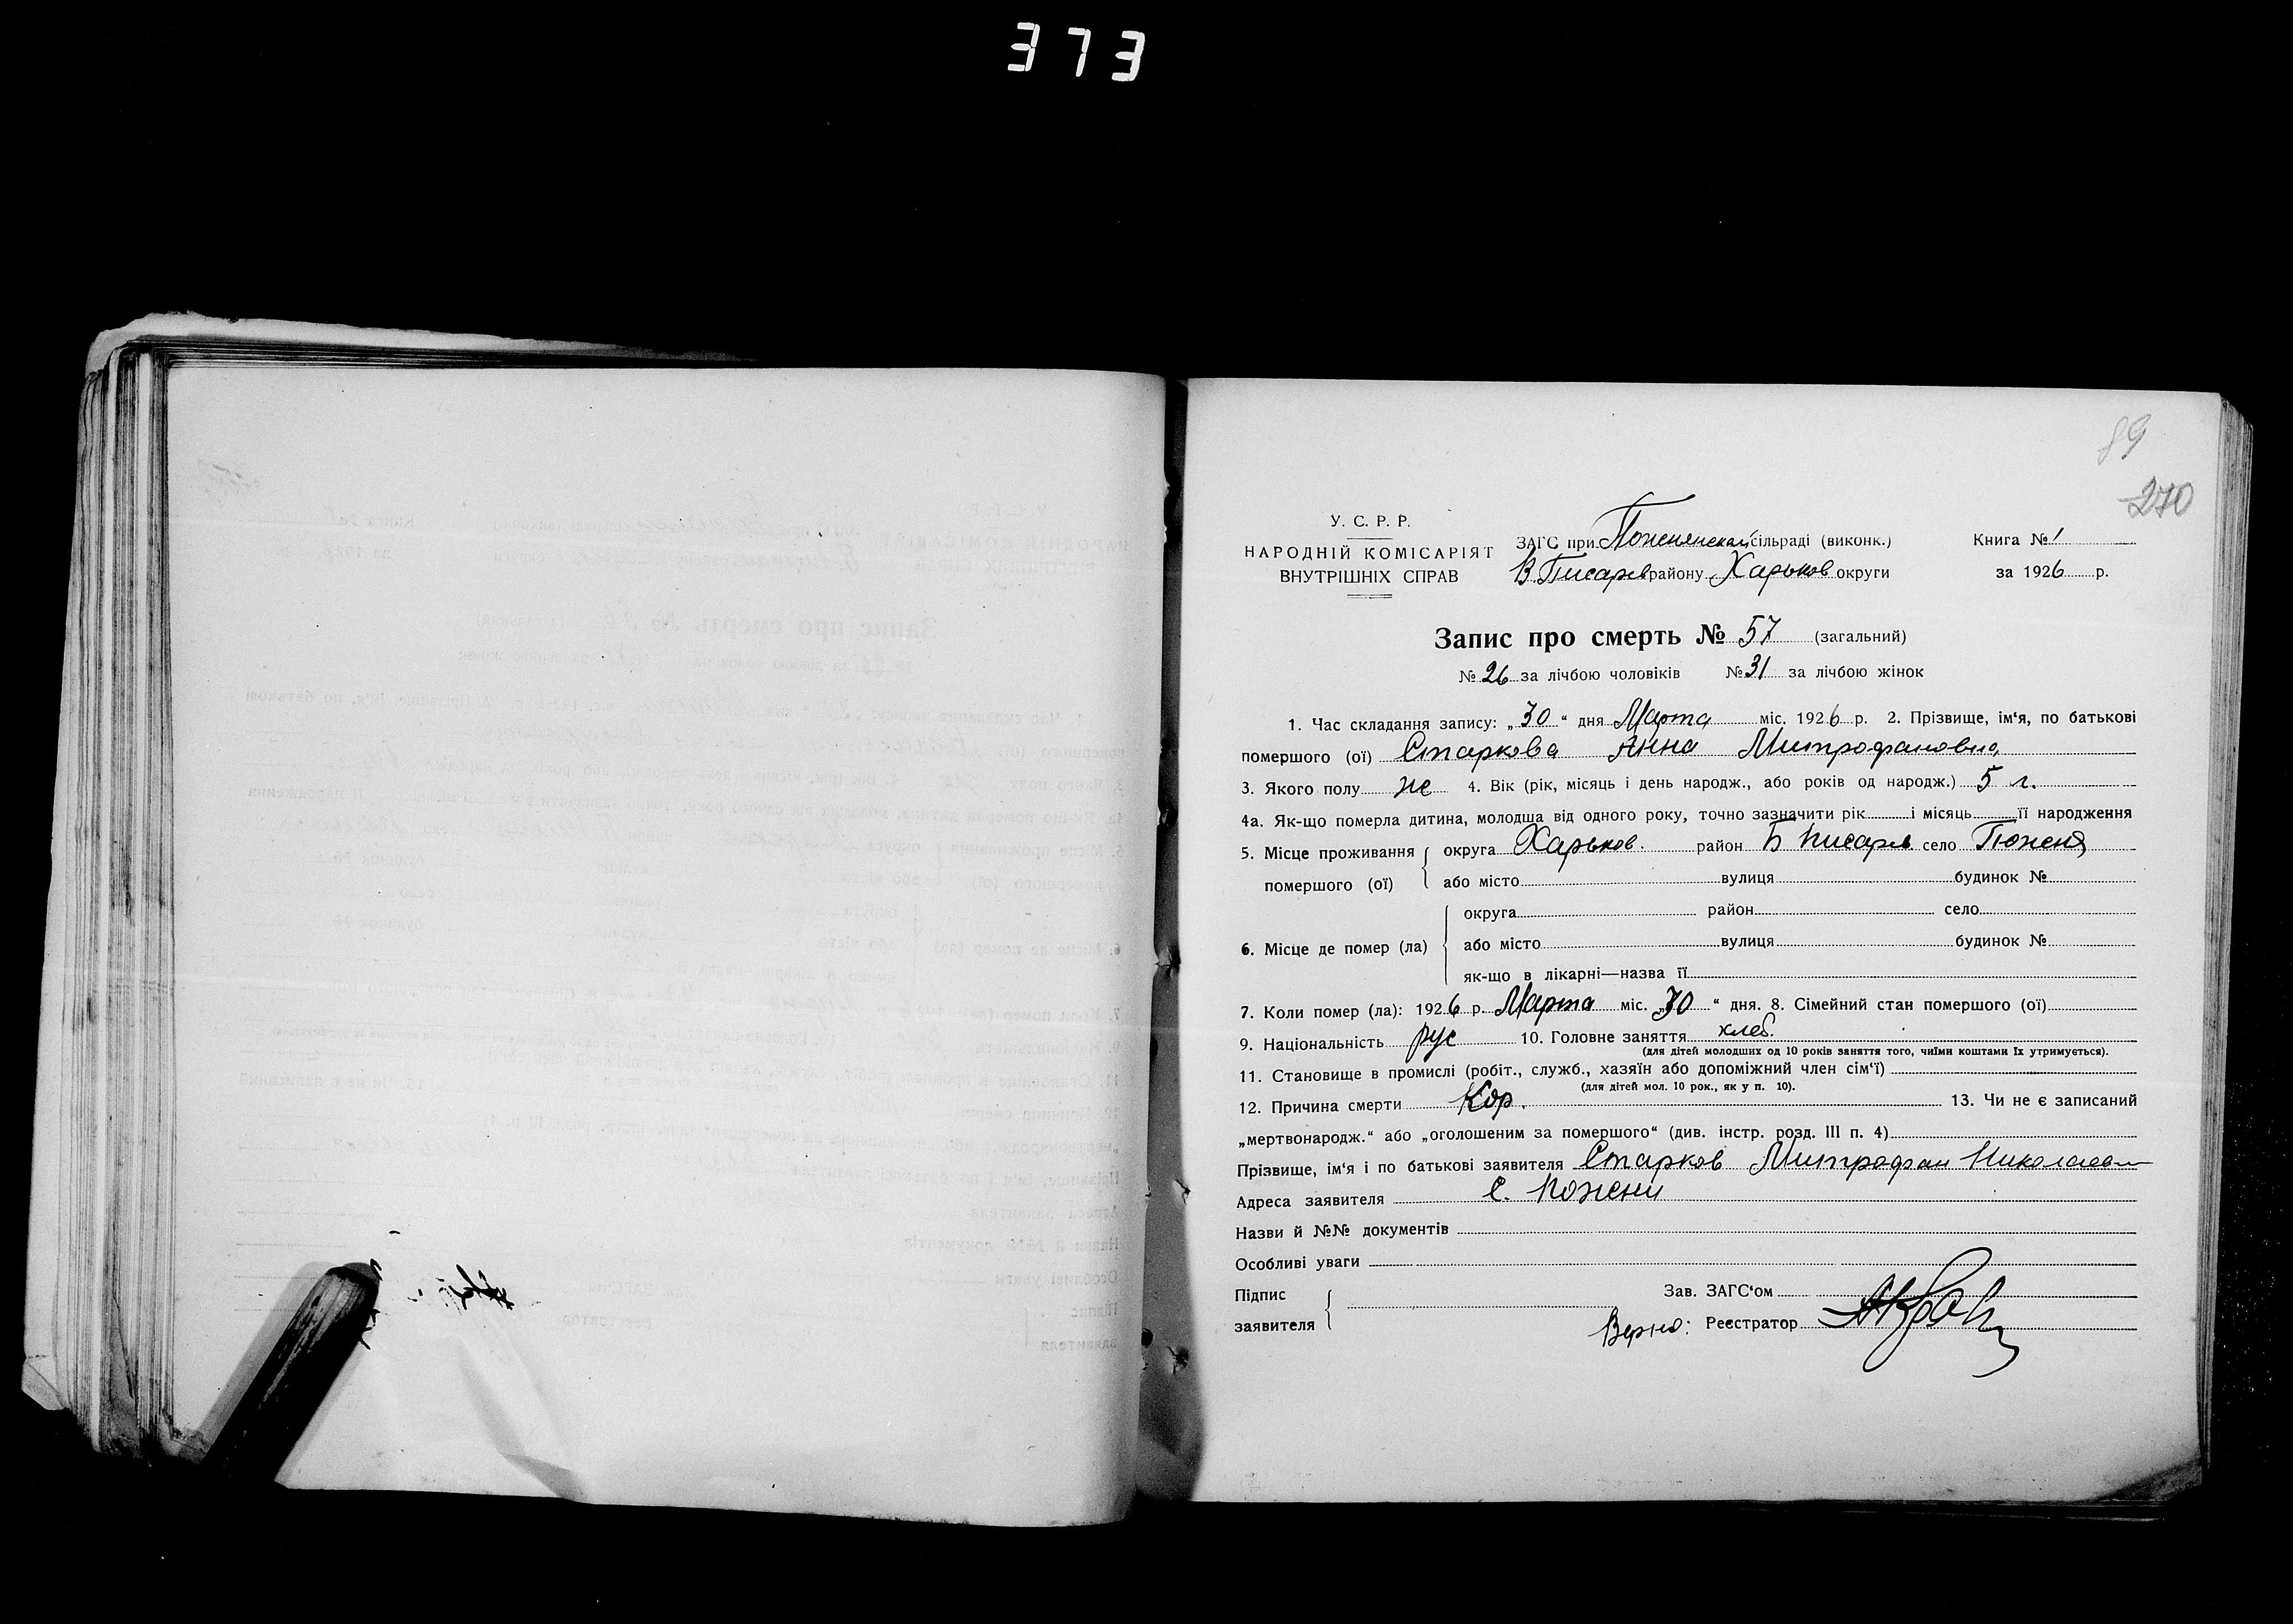 373
89
270
У. С. Р. Р.
НАРОДНІЙ КОМІСАРІЯТ
ВНУТРІШНІХ СПРАВ
ЗАГС при Поженянской сільраді (виконк.)
В Писарев району Харьков округи
Книга № 1
за 1926 р.
Запис про смерть № 57 (загальний)
№ 26 за лічбою чоловіків № 31 за лічбою жінок
1. Час складання запису: „30“ дня Марта міс. 1926 р. 2. Прізвище, ім'я, по батькові
помершого (ої) Старкова Анна Митрофановна
3. Якого полу же 4. Вік (рік, місяць і день народж., або років од народж.) 5 л.
4а. Як-що померла дитина, молодша від одного року, точно зазначити рік і місяць її народження
5. Місце проживання помершого (ої) округа Харьков. район Б Писарев село Поженя
або місто вулиця будинок №
6. Місце де помер (ла) округа район село
або місто вулиця будинок №
як-що в лікарні—назва її
7. Коли помер (ла): 1926 р. Марта міс. „30“ дня. 8. Сімейний стан помершого (ої)
9. Національність рус 10. Головне заняття хлеб.
(для дітей молодших од 10 років заняття того, чиїми коштами їх утримується).
11. Становище в промислі (робіт., служб., хазяїн або допоміжний член сім'ї)
(для дітей мол. 10 рок., як у п. 10).
12. Причина смерти Кор. 13. Чи не є записаний
„мертвонародж.“ або „оголошеним за помершого“ (див. інстр. розд. III п. 4)
Прізвище, ім'я і по батькові заявителя Старков Митрофан Николаевич
Адреса заявителя с. Пожени
Назви й №№ документів
Особливі уваги
Підпис заявителя
Зав. ЗАГС'ом
Верно: Реєстратор